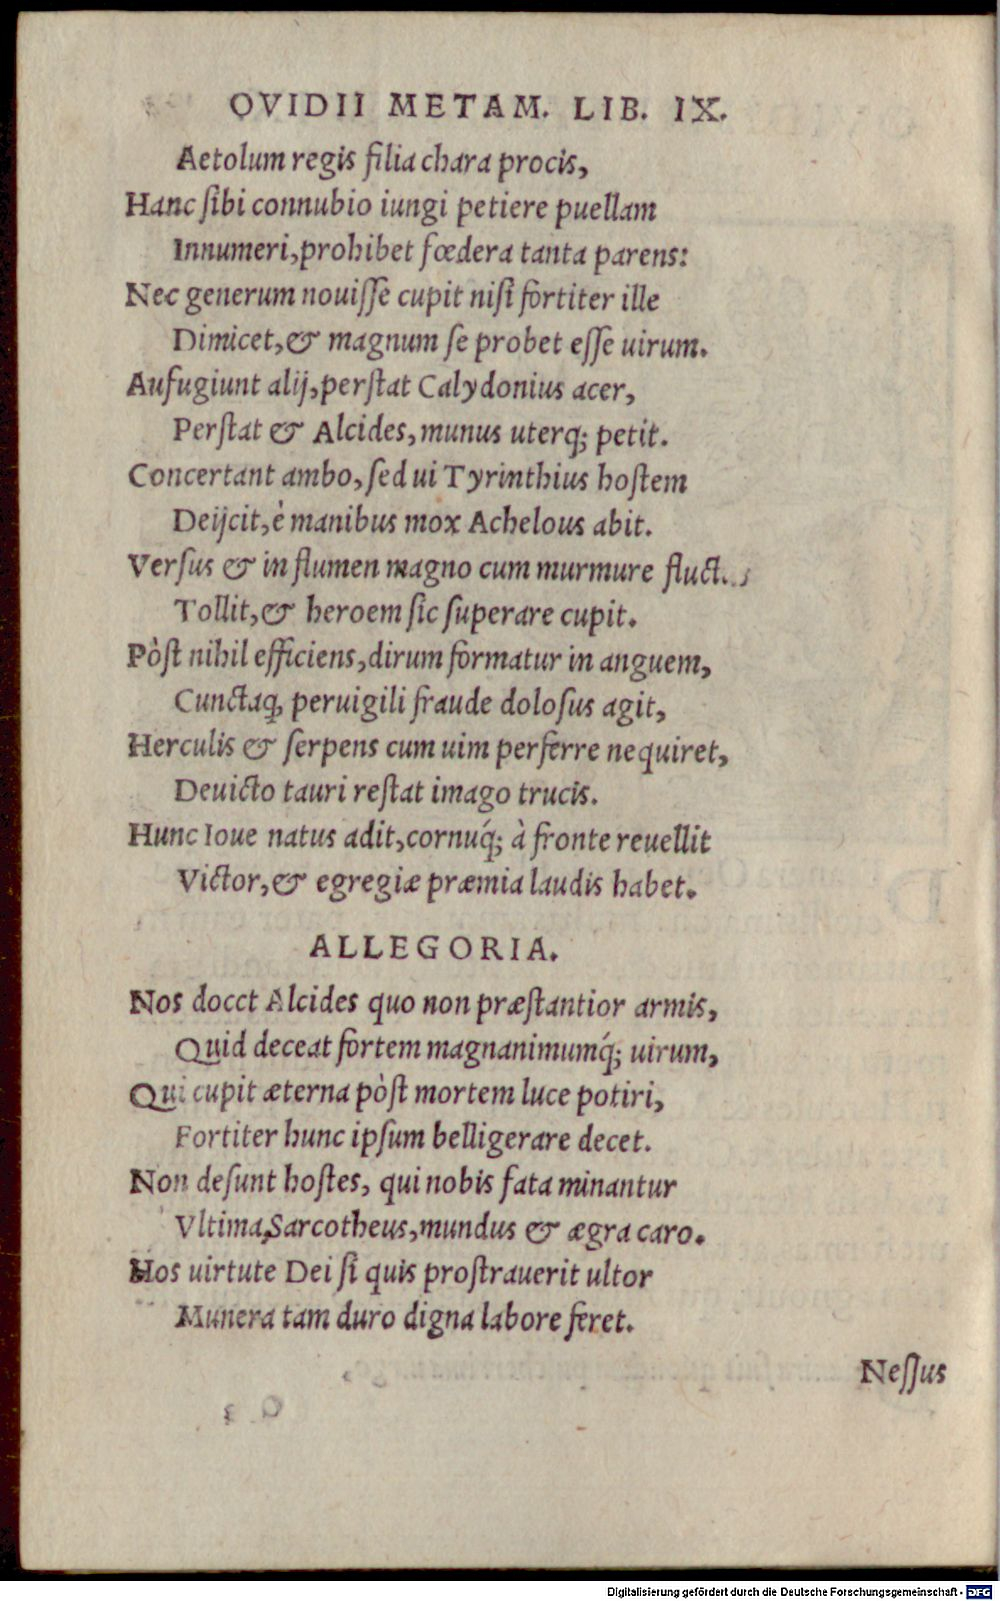 OVIDII METAM. LIB. IX.
Aetolum regis filia chara procis,
Hanc ſibi connubio iungi petiere puellam
Innumeri, prohibet fœdera tanta parens:
Nec generum nouiſſe cupit niſi fortiter ille
Dimicet, & magnum ſe probet eſſe uirum.
Aufugiunt alij, perſtat Calydonius acer,
Perſtat & Alcides, munus uterq; petit.
Concertant ambo, ſed ui Tyrinthius hoſtem
Deijcit, è manibus mox Achelous abit.
Verſus & in flumen magno cum murmure
Tollit, & heroem ſic ſuperare cupit.
Pòſt nihil efficiens, dirum formatur in anguem,
Cunctaq; peruigili fraude doloſus agit,
Herculis & ſerpens cum uim perferre nequiret,
Deuicto tauri reſtat imago trucis.
Hunc Ioue natus adit, cornuq́; à fronte reuellit
Victor, & egregiæ præmia laudis habet.
ALLEGORIA.
Nos docet Alcides quo non præſtantior armis,
Quid deceat fortem magnanimumq́; uirum,
Qui cupit æterna pòſt mortem luce potiri,
Fortiter hunc ipſum belligerare decet.
Non deſunt hoſtes, qui nobis fata minantur
Vltima, Sarcotheus, mundus & ægra caro.
Hos uirtute Dei ſi quis proſtrauerit ultor
Munera tam duro digna labore feret.
Neſſus
Digitalisierung gefördert durch die Deutsche Forschungsgemeinschaft - DFG